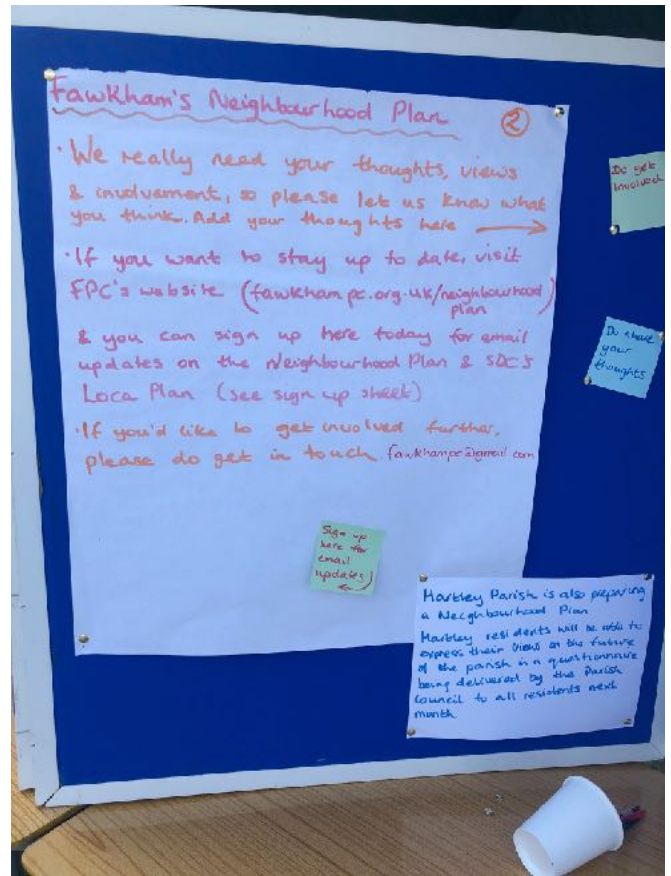 Fawkham's Neighbourhood Plan
2
· We really need your thoughts, views
& involvement, so please let us know what
you think. Add your thoughts here →
· If you want to stay up to date, visit
FPC's website (fawkhampc.org.uk/neighbourhood
plan)
& you can sign up here today for email
updates on the Neighbourhood Plan & SDC's
Loca Plan (see sign up sheet)
· If you'd like to get involved further,
please do get in touch fawkhampc@gmail.com
Do get
involved
Do share
your
thoughts
Sign up
here for
email
updates
Hartley Parish is also preparing
a Neighbourhood Plan
Hartley residents will be able to
express their views on the future
of the parish in a questionnaire
being delivered by the Parish
Council to all residents next
month